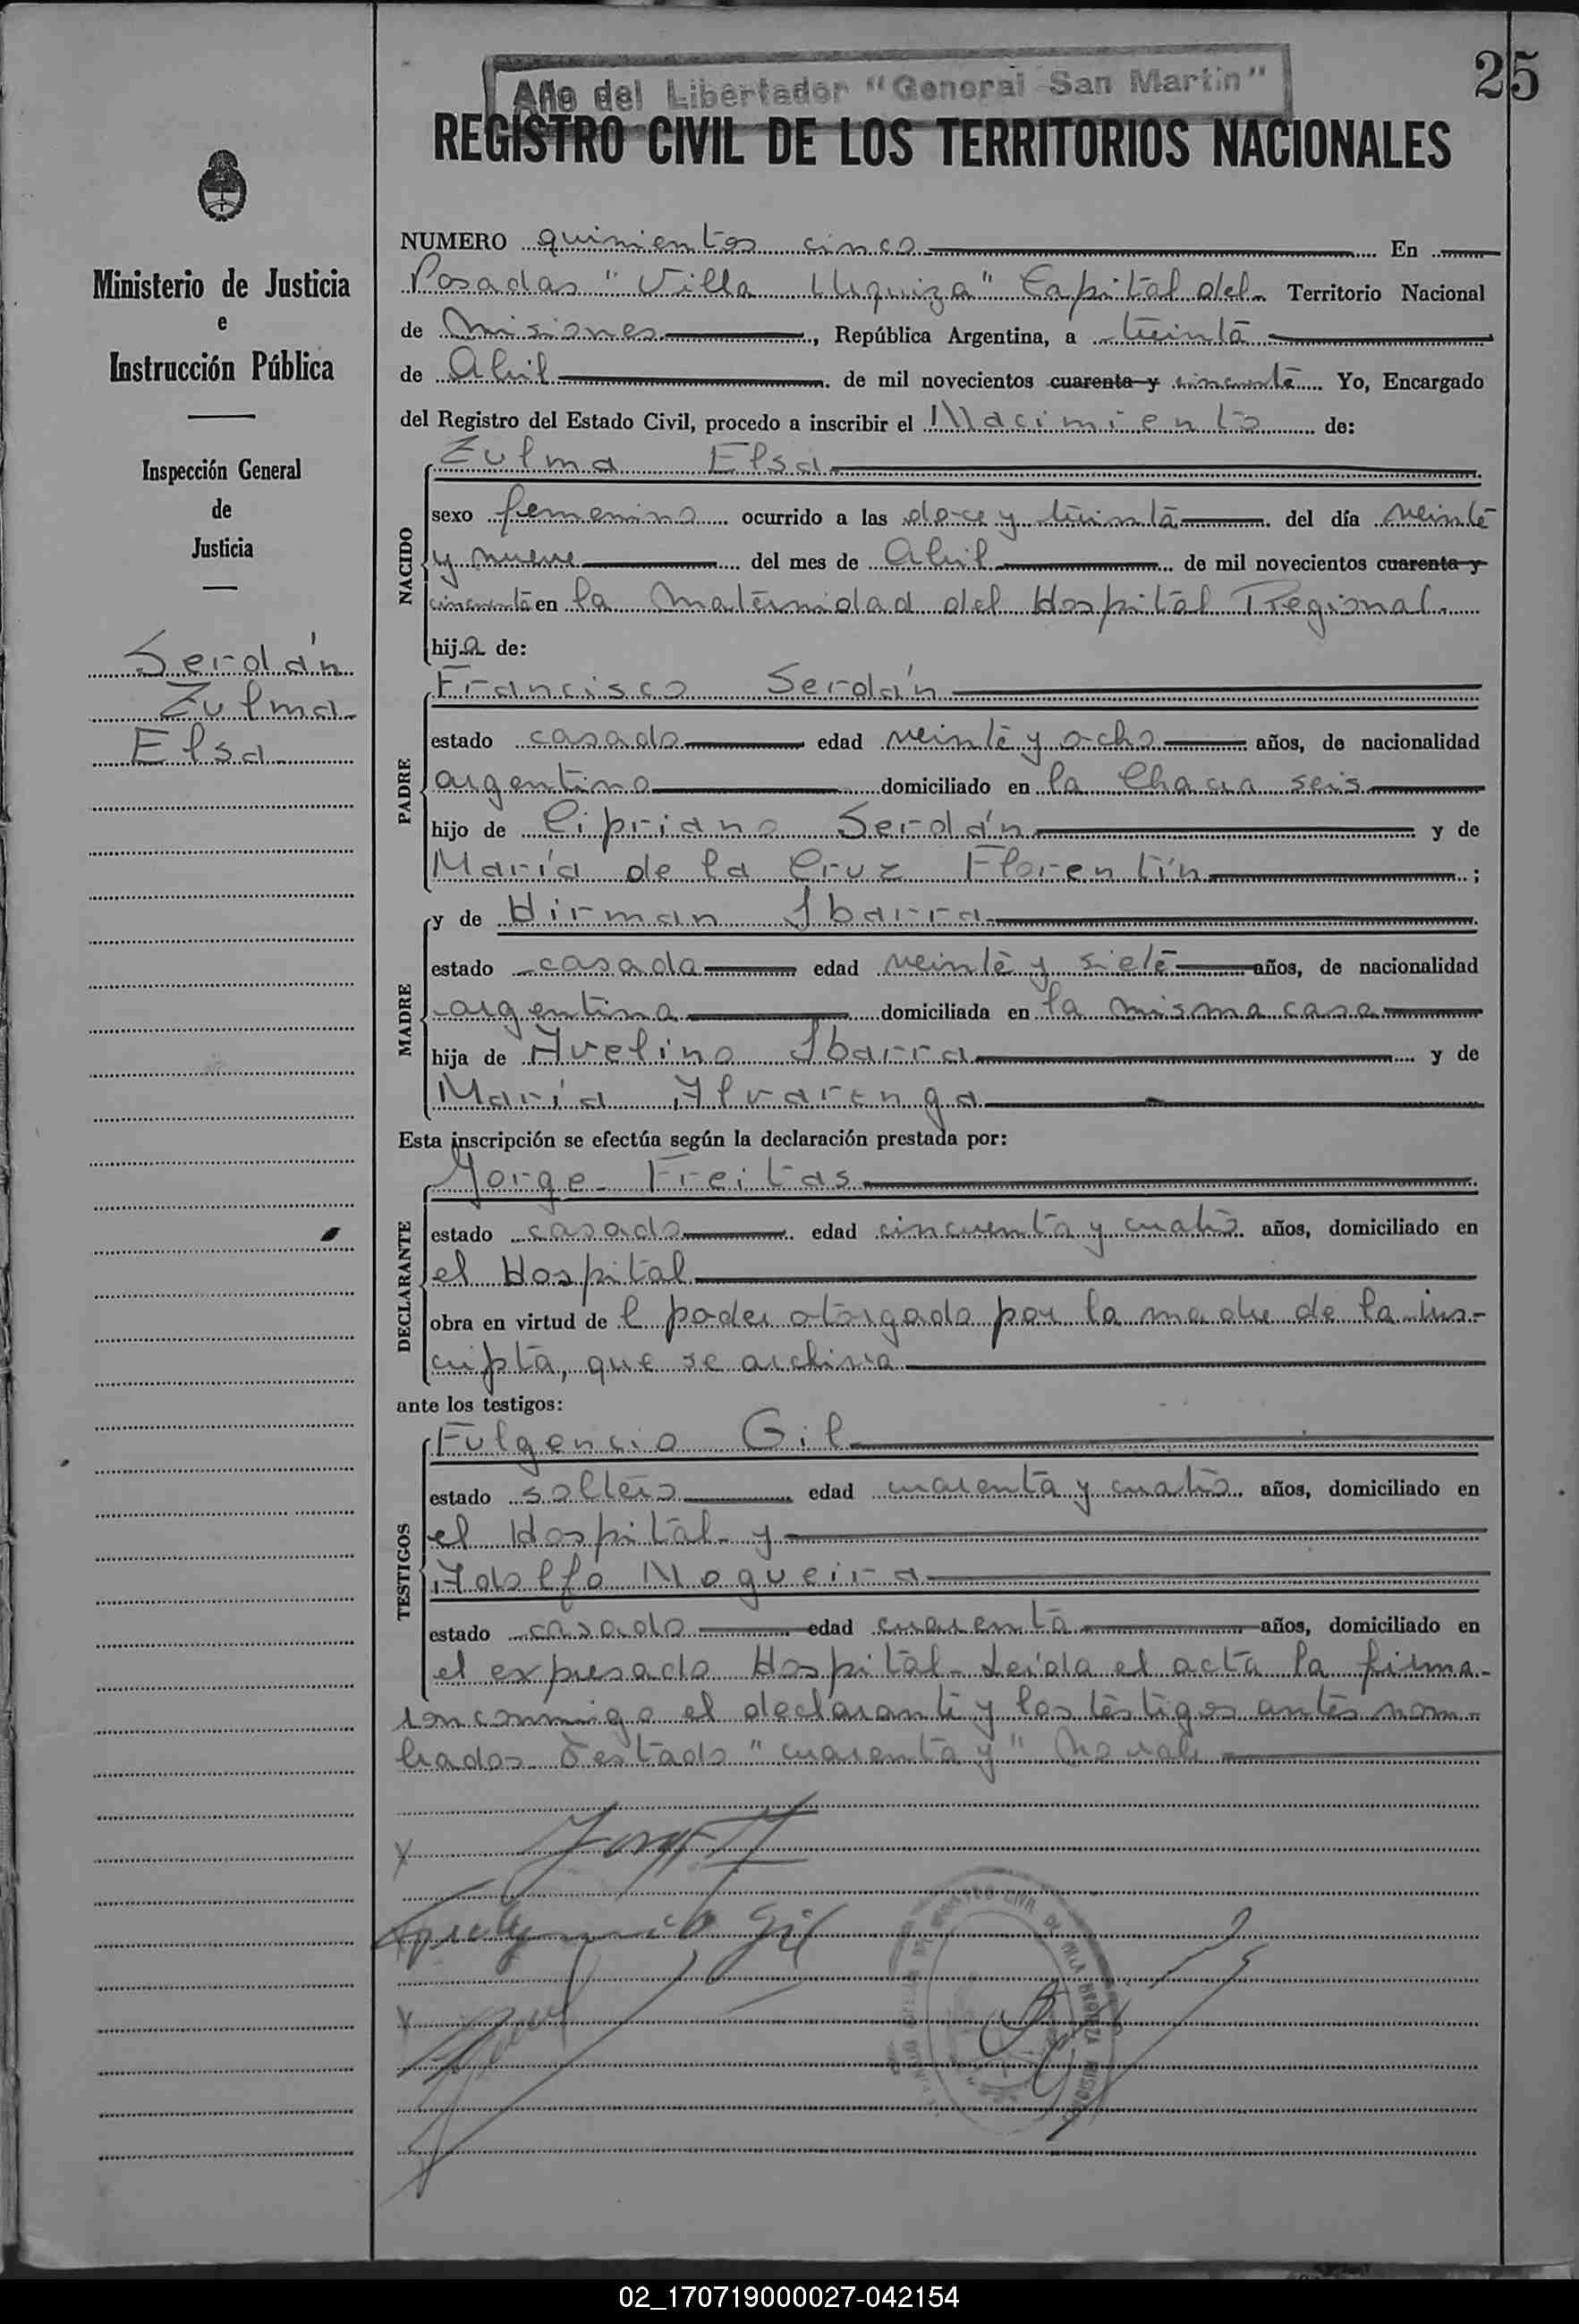 25
Año del Libertador "General San Martin"
REGISTRO CIVIL DE LOS TERRITORIOS NACIONALES
Ministerio de Justicia
e
Instrucción Pública
Inspección General
de
Justicia
Serdán
Zulma
Elsa
NUMERO quinientos cinco En
Posadas "Villa Urquiza" Capital del Territorio Nacional
de Misiones, República Argentina, a treinta
de Abril de mil novecientos cuarenta y cincuenta Yo, Encargado
del Registro del Estado Civil, procedo a inscribir el Nacimiento de:
NACIDO
Zulma Elsa
sexo femenino ocurrido a las doce y treinta del día veinte
y nueve del mes de Abril de mil novecientos cuarenta y
cincuenta en la Maternidad del Hospital Regional.
hija de:
PADRE
Francisco Serdán
estado casado edad veinte y ocho años, de nacionalidad
argentino domiciliado en la Chacra seis
hijo de Cipriano Serdán y de
María de la Cruz Florentín;
MADRE
y de Hirman Ibarra
estado casada edad veinte y siete años, de nacionalidad
argentina domiciliada en la misma casa
hija de Avelino Ibarra y de
María Alvarenga
Esta inscripción se efectúa según la declaración prestada por:
DECLARANTE
Jorge Freitas
estado casado edad cincuenta y cuatro años, domiciliado en
el Hospital
obra en virtud de l poder otorgado por la madre de la ins-
cripta, que se archiva
ante los testigos:
TESTIGOS
Fulgencio Gil
estado soltero edad cuarenta y cuatro años, domiciliado en
el Hospital y
Adolfo Nogueira
estado casado edad cuarenta años, domiciliado en
el expresado Hospital. Leída el acta la firma
ron conmigo el declarante y los testigos antes nom-
brados. Testado "cuarenta y" No vale
Fulgencio Gil
02_170719000027-042154